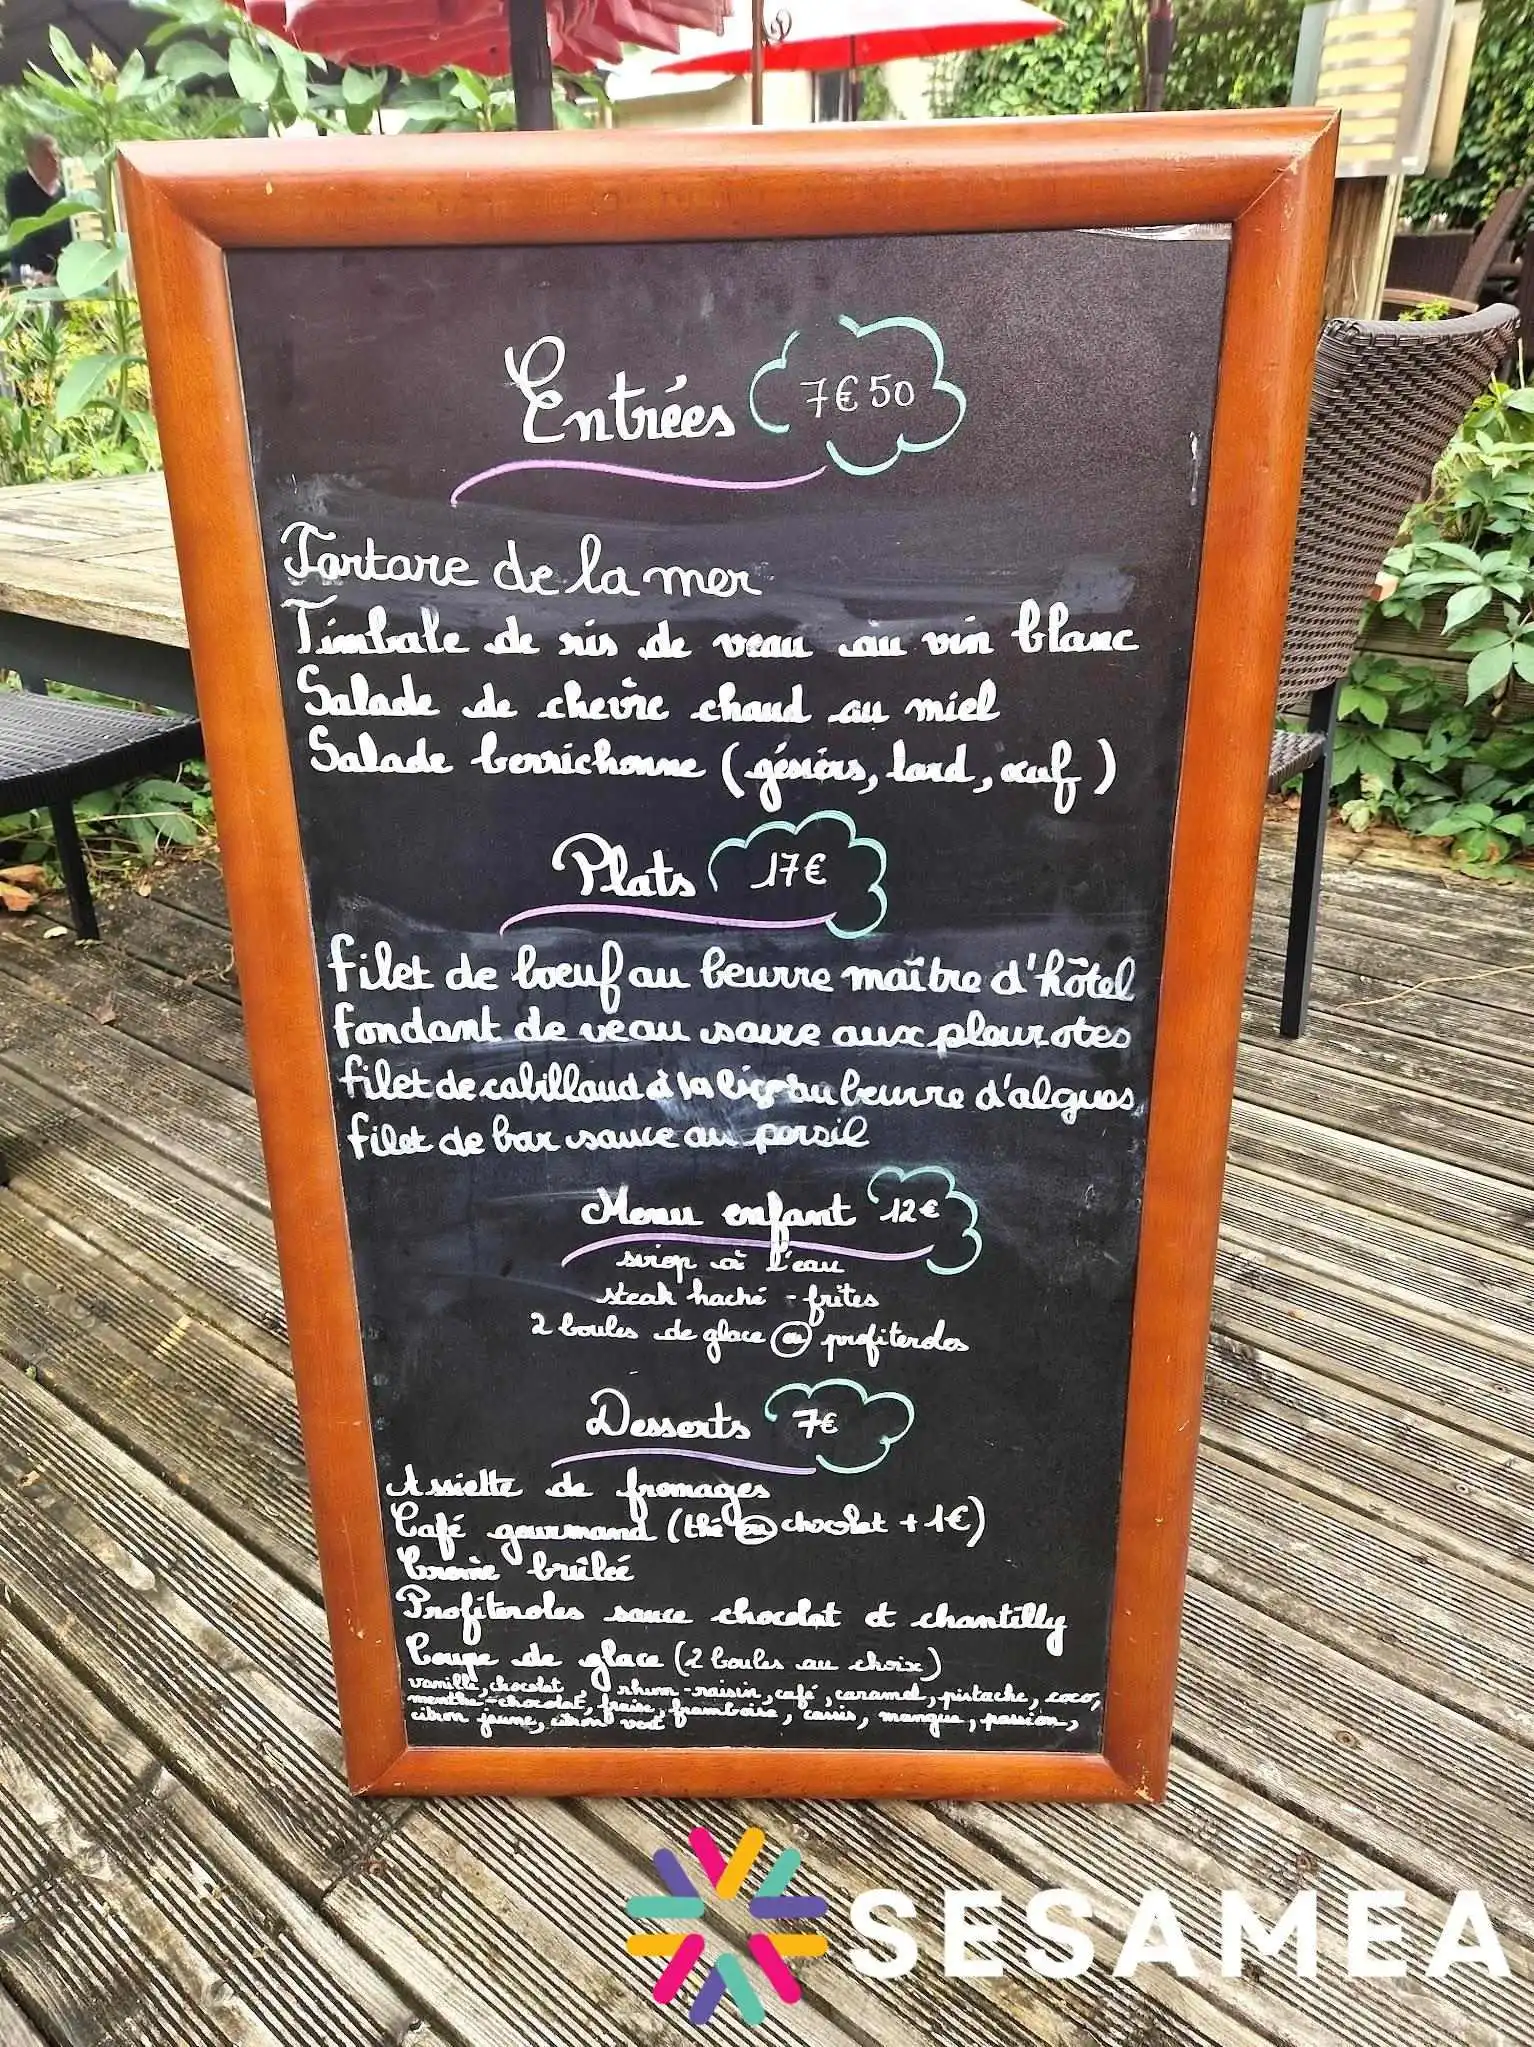 Entrées 7€50
Tartare de la mer
Timbale de ris de veau au vin blanc
Salade de chèvre chaud au miel
Salade berrichonne (gésiers, lard, œuf)
Plats 17€
filet de boeuf au beurre maître d'hôtel
fondant de veau sauce aux pleurotes
filet de cabillaud à la au beurre d'algues
filet de bar sauce au persil
Menu enfant 12€
sirop à l'eau
steak haché - frites
2 boules de glace ou profiteroles
Desserts 7€
Assiette de fromages
Café gourmand (thé ou chocolat + 1€)
Crème brûlée
Profiteroles sauce chocolat et chantilly
Coupe de glace (2 boules au choix)
vanille, chocolat, rhum-raisin, café, caramel, pistache, coco,
menthe-chocolat, fraise, framboise, cassis, mangue, passion,
citron jaune, citron vert
SESAMEA